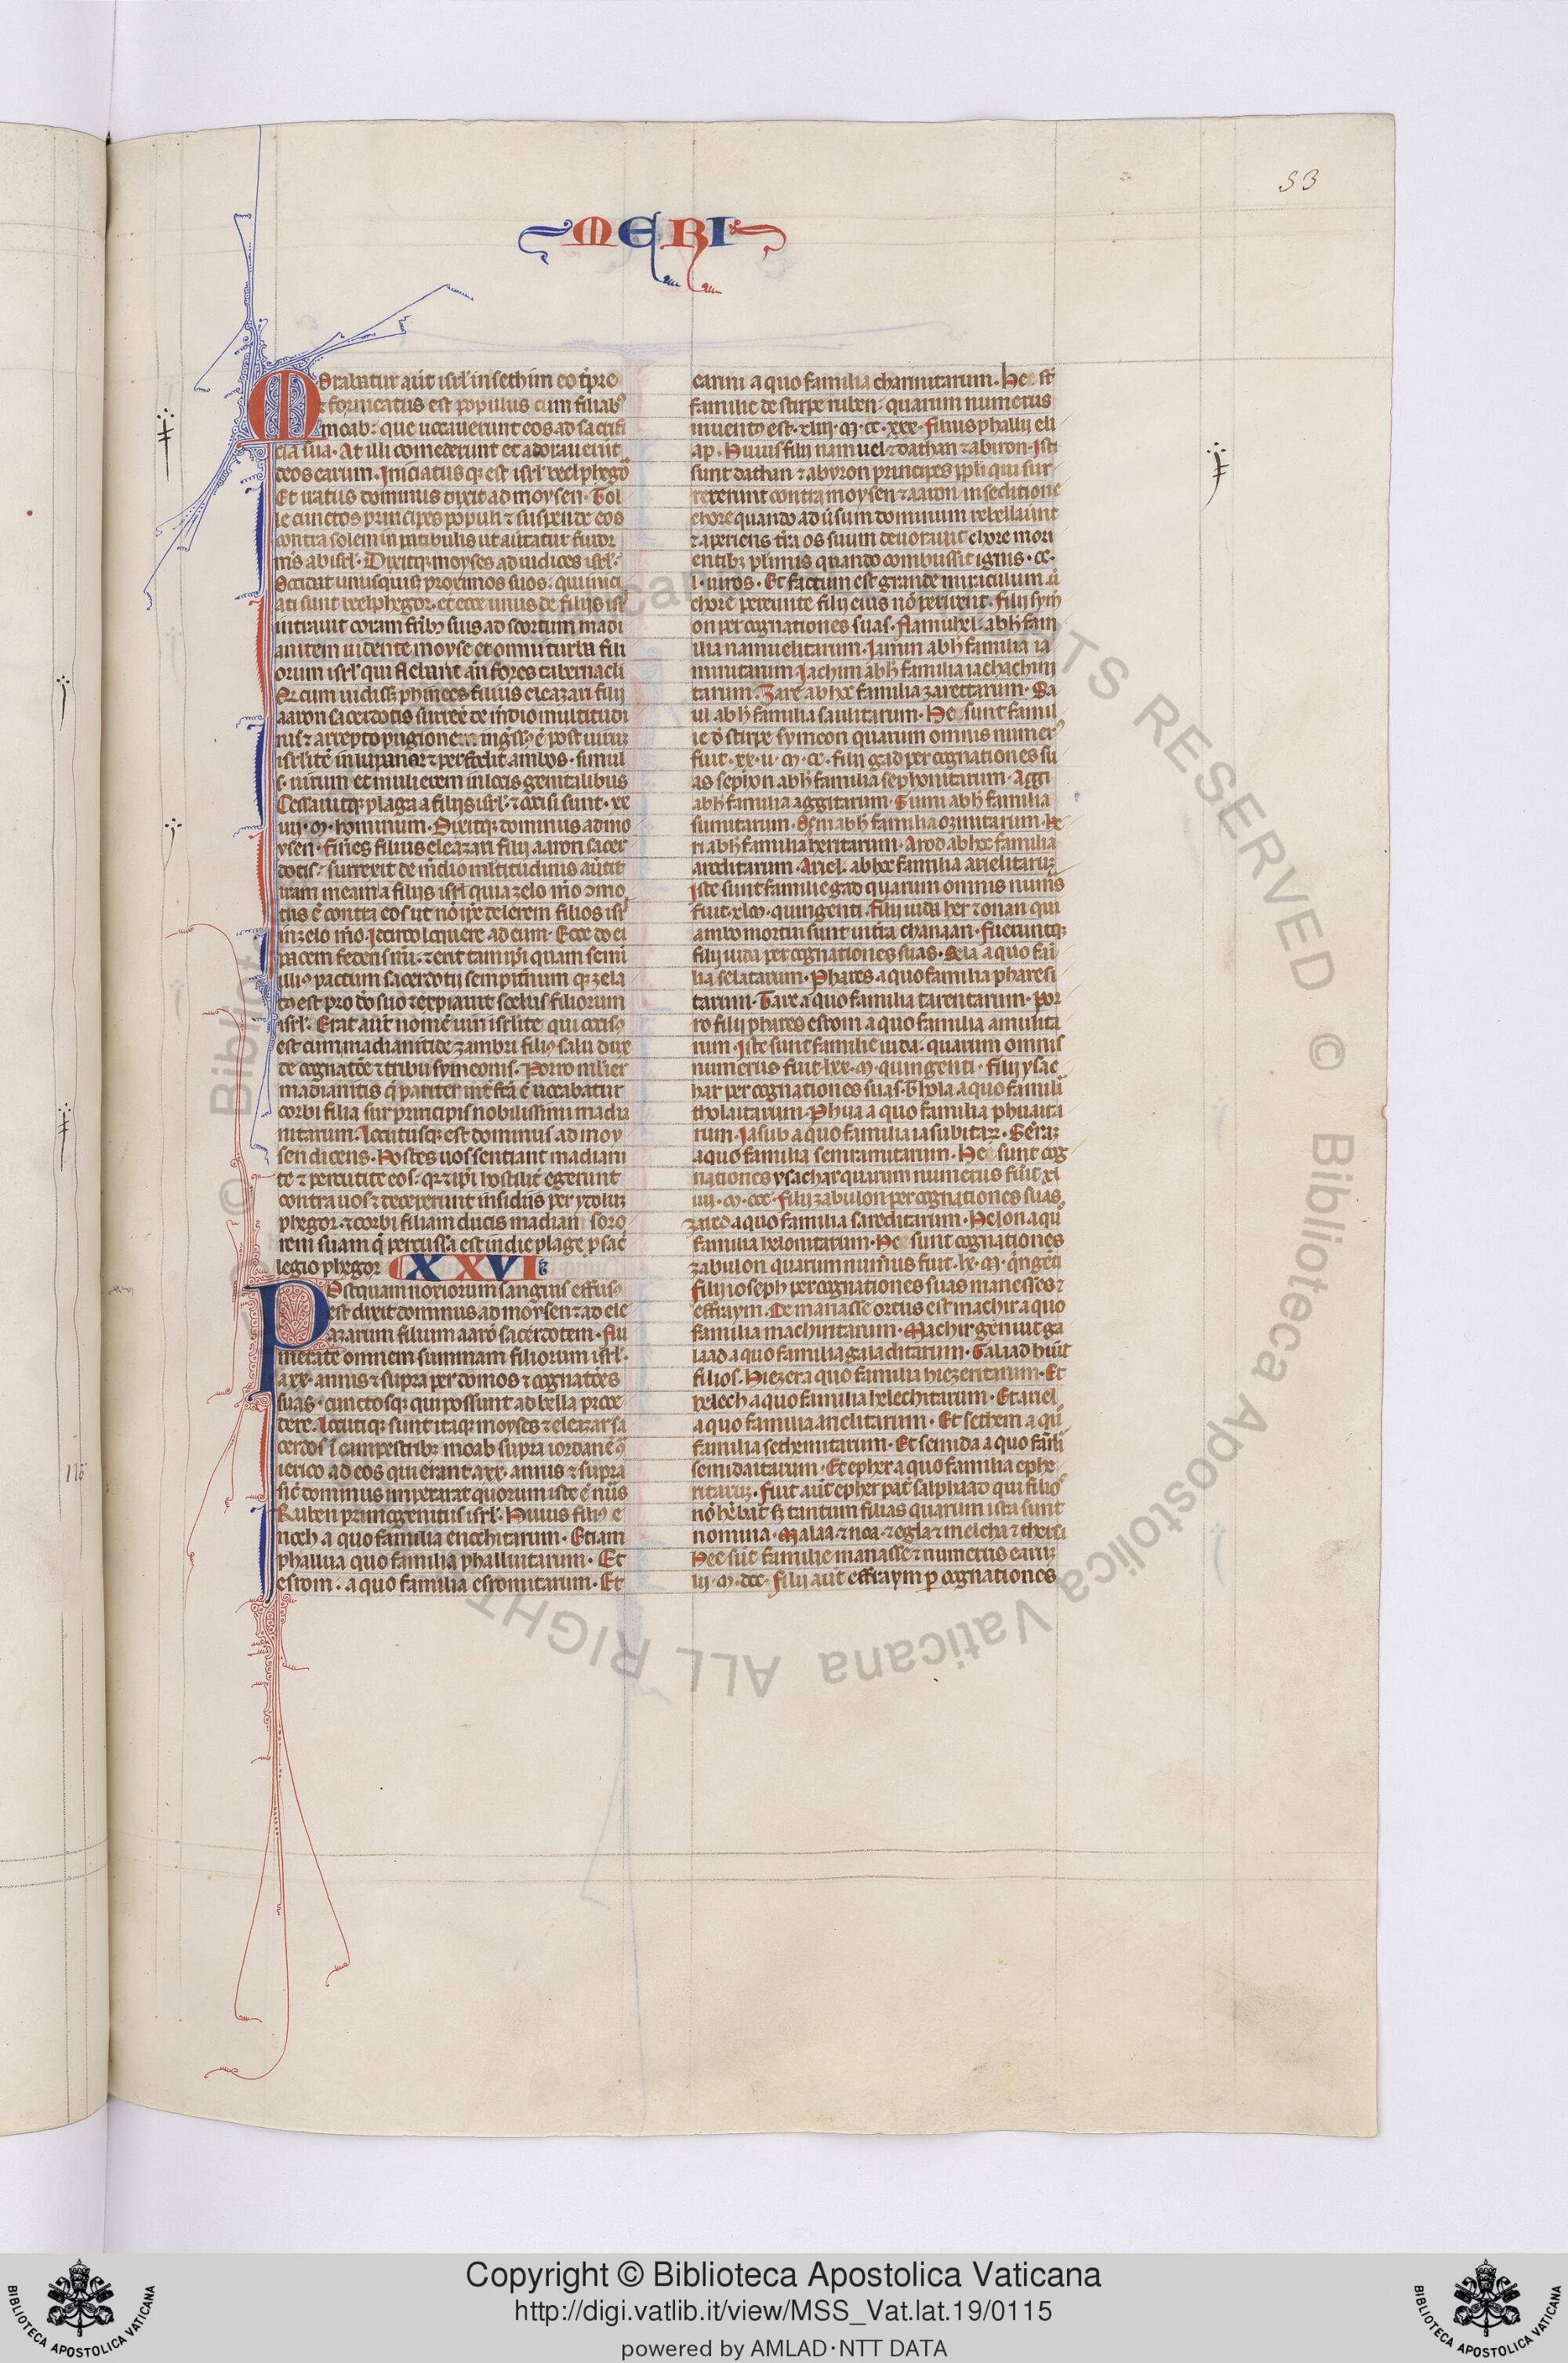 53
MERI
Morabatur aut̄ isrl' in sethim eo tp̄re
⁊ fornicatus est populus cum filiab⁹
moab: que uocauerunt eos ad sacrifi
cia sua. At illi comederunt et adorauerūt
deos earum. Iniciatusq; est isrl' beelphegō
Et iratus dominus dixit ad moysen. Tol
le cunctos principes populi ⁊ suspende eos
contra solem in patibulis ut auertatur furor
m̄s ab isrl'. Dixitq; moyses ad iudices isrl'.
Occidat unusquisq; proximos suos: qui inici
ati sunt beelphegor. et ecce unus de filijs isrl'
intrauit coram fr̄ib; suis ad scortum madi
anitem uidente moyse et omni turba fili
orum isrl' qui flebant an̄ fores tabernacli
Qr̄ cum uidiss; phinees filius eleazari filij
aaron sacerdotis surrex̄ de medio multitudi
nis ⁊ arrepto pugione ingr̄ss⁹ ē post uirū
isrl'item in lupanar ⁊ perfodit ambos. simul
s. uirum et mulierem in locis genitalibus
Cessauitq; plaga a filijs isrl'. ⁊ occisi sunt. xx
iiii. m̄. hominum. Dixitq; dominus ad mo
ysen. finees filius eleazari filij aaron sacer
dotis: surrexit de medio multitudinis auertit
iram meam a filijs isrl' quia zelo m̄o ɔmo
tus ē contra eos ut nō ip̄e delerem filios isrl'
in zelo m̄o. Idcirco loquere ad eum. Ecce do ei
pacem federis mei. ⁊ erit tam ip̄i quam semi
illi⁹ pactum sacerdotij sempit̄num q; zela
t⁹ est pro do suo ⁊ expiauit scelus filiorum
isrl'. Erat aut̄ nomē uiri isrl'ite qui occis⁹
est cum madianitide zambri fili⁹ salu dux
de cognatōe ⁊ tribu symeonis. Porro mlier
madianitis q̄ pariter int̄fc̄a ē uocabatur
corbi filia sur principis nobilissimi madia
nitarum. Locutusq; est dominus ad moy
sen dicens. Hostes uos sentiant madiani
te ⁊ percutite eos: qr̄ ⁊ ip̄i hostilit̄ egerunt
contra uos ⁊ deceperunt insidijs per ydolū
phegor. ⁊ corbi filiam ducis madian soro
rem suam q̄ percussa est in die plage p̄ sac
legio phegor XXVI
Postquam noxiorum sanguis effus⁹
est dixit dominus ad moysen ⁊ ad ele
azarum filium aarō sacerdotem. Nu
merate omnem summam filiorum isrl'.
a xx. annis ⁊ supra per domos ⁊ cognatōes
suas. cunctosq; qui possunt ad bella proce
dere. Locutiq; sunt itaq; moyses ⁊ eleazar sa
cerdos ī campestrib; moab supra iordanē ɔ̄
ierico ad eos qui erant a xx. annis ⁊ supra
sic̄ dominus imperarat quorum iste ē nūs
Ruben primogenitus isrl'. Huius fili⁹ e
noch a quo familia enochitarum. Etiam
phallu a quo familia phalluitarum. Et
esrom. a quo familia esromitarum. Et
carmi a quo familia charmitarum. Hee st̄
familie de stirpe ruben. quarum numerus
inuent⁹ est. xliii. m̄. ⁊ cc. xxx. filius phallij eli
ap. Huius filij namuel. ⁊ dathan ⁊ abiron. Isti
sunt dathan ⁊ abyron principes pp̄li qui sur
rexerunt contra moysen ⁊ aaron in seditione
chore quando aduersum dominum rebellauer̄nt
⁊ aperiens tr̄a os suum deuorauit chore mori
entib; plurimis quando combussit ignis. cc.
l. uiros. Et factum est grande miraculum. ut
chore pereunte filij eius nō perirent. filij sym
on per cognationes suas. Namuhel. ab h̄ fam
ilia namuelitarum. Iamin ab h̄ familia ia
minitarum. Iachim ab h̄ familia iachachini
tarum. Zare ab hoc familia zareitarum. Sa
ul ab h̄ familia saulitarum. Hee sunt famil
ie d̄ stirpe symeon quarum omnis numer⁹
fuit. xx. ii. m̄. cc. filij gad per cognationes su
as sephon ab h̄ familia sephonitarum. Aggi
ab h̄ familia aggitarum. Suni ab h̄ familia
sunitarum. Ozni ab h̄ familia oznitarum. he
ri ab h̄ familia heritarum. Arod ab hoc familia
aroditarum. Ariel. ab hoc familia arielitarum
Iste sunt familie gad quarum omnis num̄s
fuit. xl. m̄. quingenti. filij iuda her ⁊ onan qui
ambo mortui sunt in tr̄a chanaan. fueruntq;
filij iuda per cognationes suas. Sela a quo fam̄
lia selaitarum. Phares a quo familia pharesi
tarum. Zare a quo familia zareitarum. Por
ro filij phares esrom a quo familia amulita
rum. Iste sunt familie iuda. quarum omnis
numerus fuit. lxx. m̄. quingenti. filij ysac
har per cognationes suas. Thola a quo famili
tholaitarum. Phua a quo familia phuaita
rum. Iasub a quo familia iasubitarum. Semran
a quo familia semramitarum. Hee sunt cog
nationes ysachar quarum numerus fuit lxi
iiii. m̄. ccc. filij zabulon per cognationes suas.
zared a quo familia sareditarum. Helon a quo
familia helonitarum. Hee sunt cognationes
zabulon quarum num̄us fuit. lx. m̄. q̄ngēti
filij ioseph per cognationes suas manasses ⁊
effraym. De manasse ortus est machir a quo
familia machiritarum. Machir genuit ga
laad a quo familia galaditarum. Galaad huīt
filios. Hiezer a quo familia hiezeritarum. Et
helech a quo familia helechitarum. Et ariel
a quo familia arielitarum. Et sethem a quo
familia sethemitarum. Et semida a quo famili
semidaitarum. Et epher a quo familia ephe
ritarum. fuit aut̄ epher pat̄ salphaad qui filio⁹
nō hēbat s; tantum filias quarum ista sunt
nomina. Malaa. ⁊ noa. ⁊ egla ⁊ melcha ⁊ thersa
Hee sūt familie manasse ⁊ numerus earum
lii. m̄. dcc. filij aut̄ effraym p̄ cognationes
Copyright © Biblioteca Apostolica Vaticana
http://digi.vatlib.it/view/MSS_Vat.lat.19/0115
powered by AMLAD·NTT DATA
BIBLIOTECA APOSTOLICA VATICANA
BIBLIOTECA APOSTOLICA VATICANA